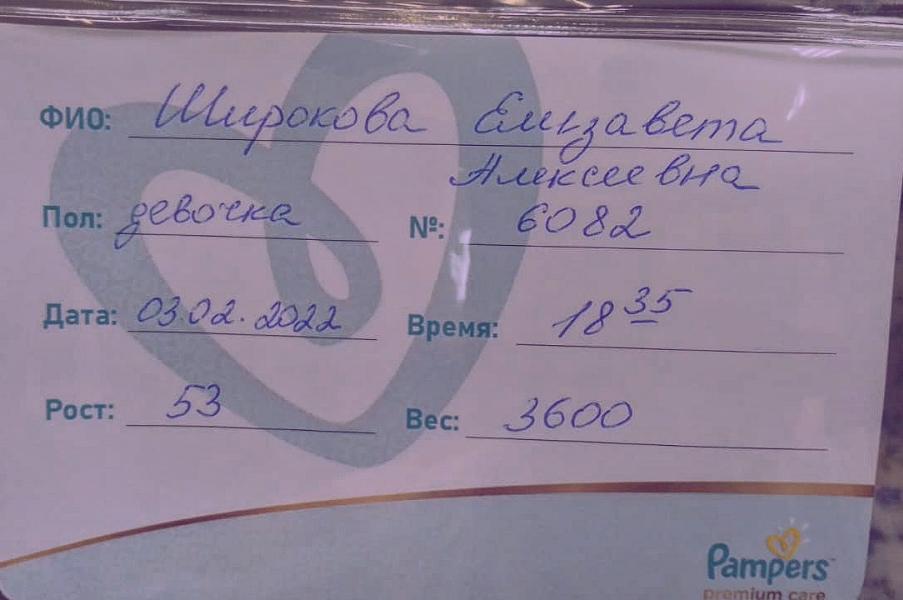 ФИО: Широкова Елизавета
Алексеевна
Пол: девочка №: 6082
Дата: 03.02.2022 Время: 18 35
Рост: 53 Вес: 3600
Pampers
premium care